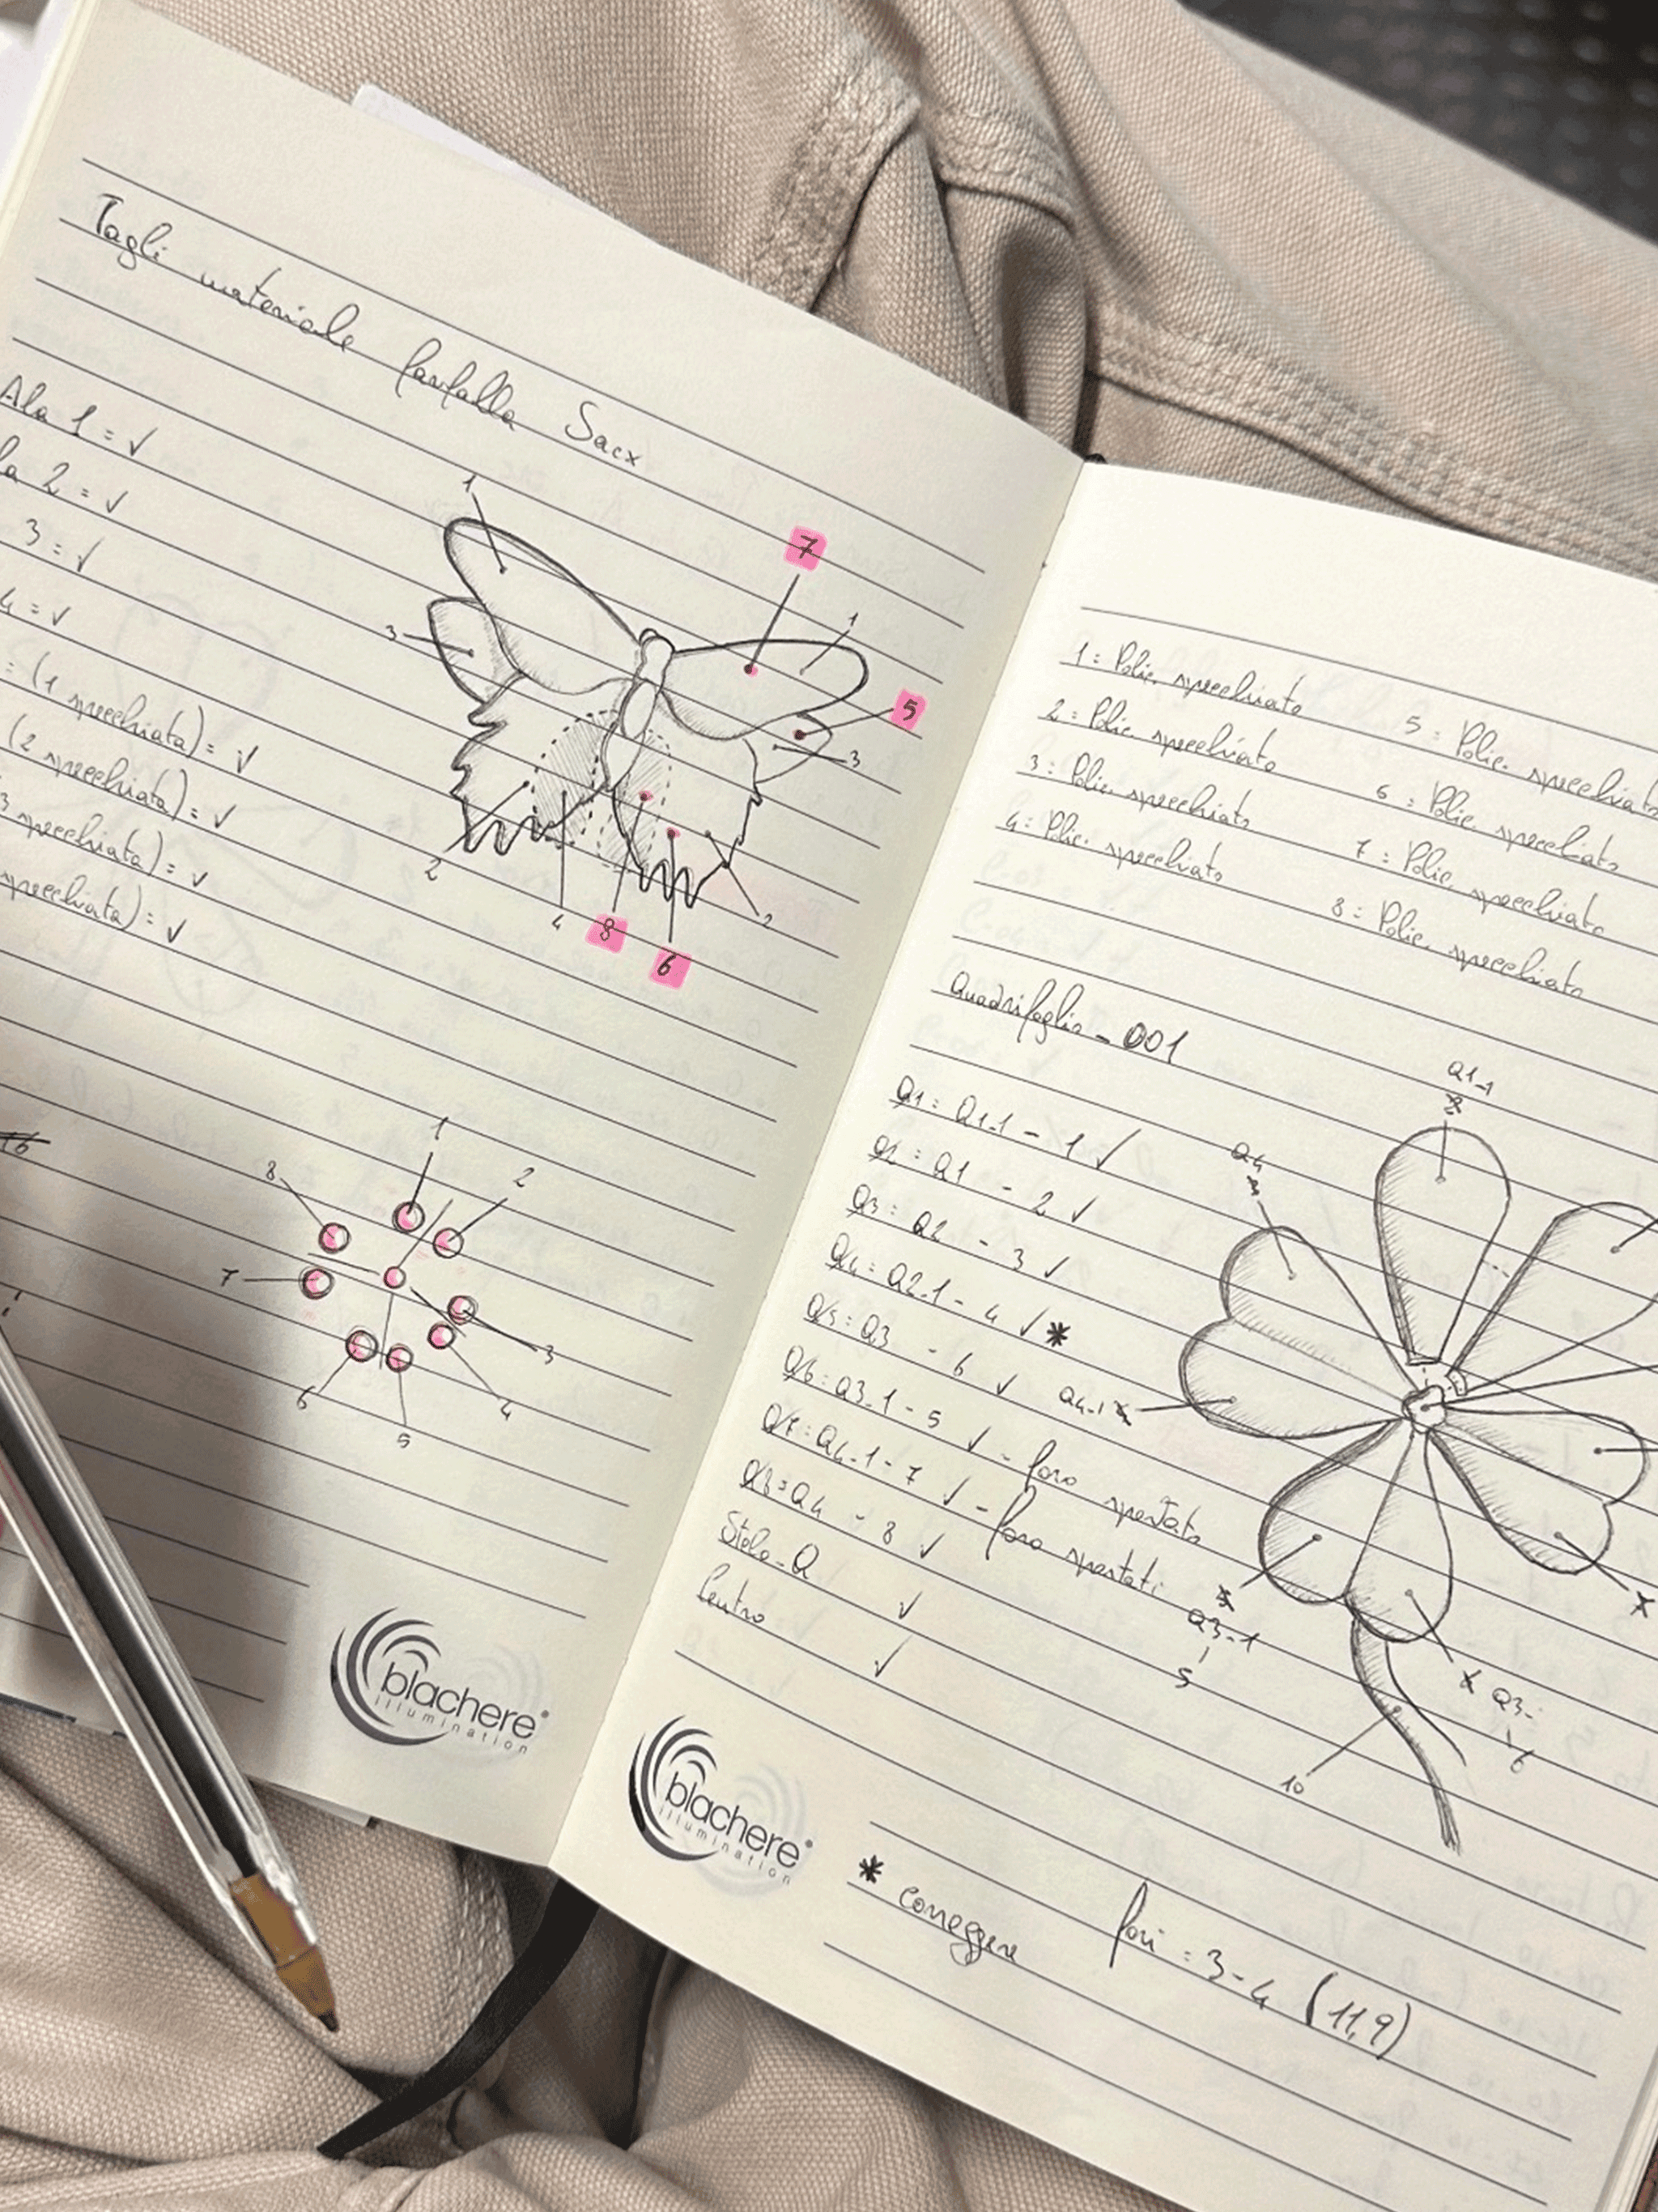 Tagli materiale farfalla Sacx
Ala 1 = ✓
la 2 = ✓
3 = ✓
4 = ✓
= (1 specchiata) = ✓
(2 specchiata) = ✓
3 specchiata) = ✓
specchiata) = ✓
1
7
1
3
5
3
2
4
8
6
2
1
2
8
7
3
4
6
5
blachere
illumination
1 = Polic. specchiato
2 = Polic. specchiato
3 = Polic. specchiato
4 = Polic. specchiato
5 = Polic. specchiato
6 = Polic. specchiato
7 = Polic. specchiato
8 = Polic. specchiato
Quadrifoglio - 001
Q1 = Q1-1 - 1 ✓
Q2 = Q1 - 2 ✓
Q3 = Q2 - 3 ✓
Q4 = Q2-1 - 4 ✓ *
Q5 = Q3 - 6 ✓
Q6 = Q3-1 - 5 ✓ - foro spostato
Q7 = Q4-1 - 7 ✓ - foro spostati
Q8 = Q4 - 8 ✓
Stelo-Q ✓
Centro ✓
Q1-1
Q4
Q4-1
Q3-1
5
Q3-
6
10
* correggere
fori = 3-4 (11,9)
blachere
illumination